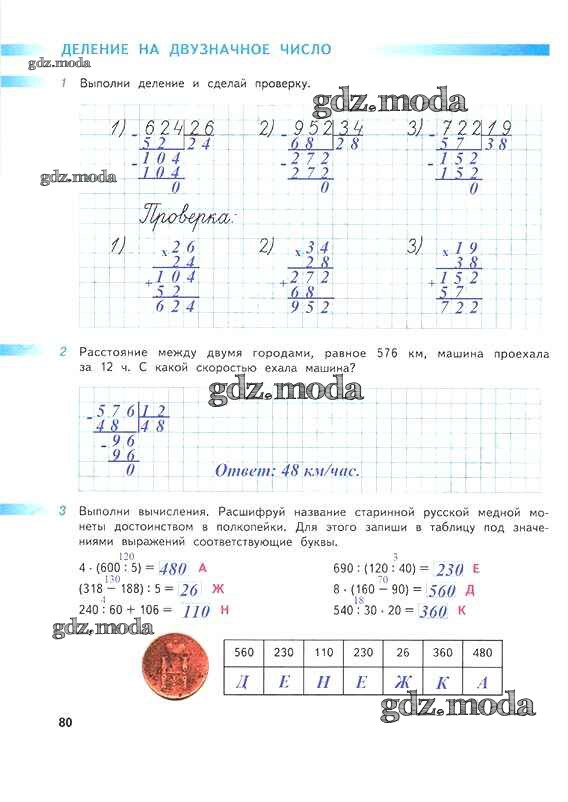 ДЕЛЕНИЕ НА ДВУЗНАЧНОЕ ЧИСЛО
gdz.moda
1 Выполни деление и сделай проверку.
gdz.moda
1) 624 26 2) 952 34 3) 722 19
- 52 24 - 68 28 - 57 38
- 104 - 272 - 152
104 272 152
0 0 0
gdz.moda
Проверка:
1) x 26 2) x 34 3) x 19
24 28 38
+ 104 + 272 + 152
52 68 57
624 952 722
2 Расстояние между двумя городами, равное 576 км, машина проехала
за 12 ч. С какой скоростью ехала машина?
gdz.moda
- 576 12
48 48
- 96
96
0 Ответ: 48 км/час.
3 Выполни вычисления. Расшифруй название старинной русской медной мо-
неты достоинством в полкопейки. Для этого запиши в таблицу под значе-
ниями выражений соответствующие буквы.
120 3
4 · (600 : 5) = 480 А 690 : (120 : 40) = 230 Е
130 70
(318 − 188) : 5 = 26 Ж 8 · (160 − 90) = 560 Д
4 18
240 : 60 + 106 = 110 Н 540 : 30 · 20 = 360 К
gdz.moda
560 230 110 230 26 360 480
Д Е Н Е Ж К А
gdz.moda
80